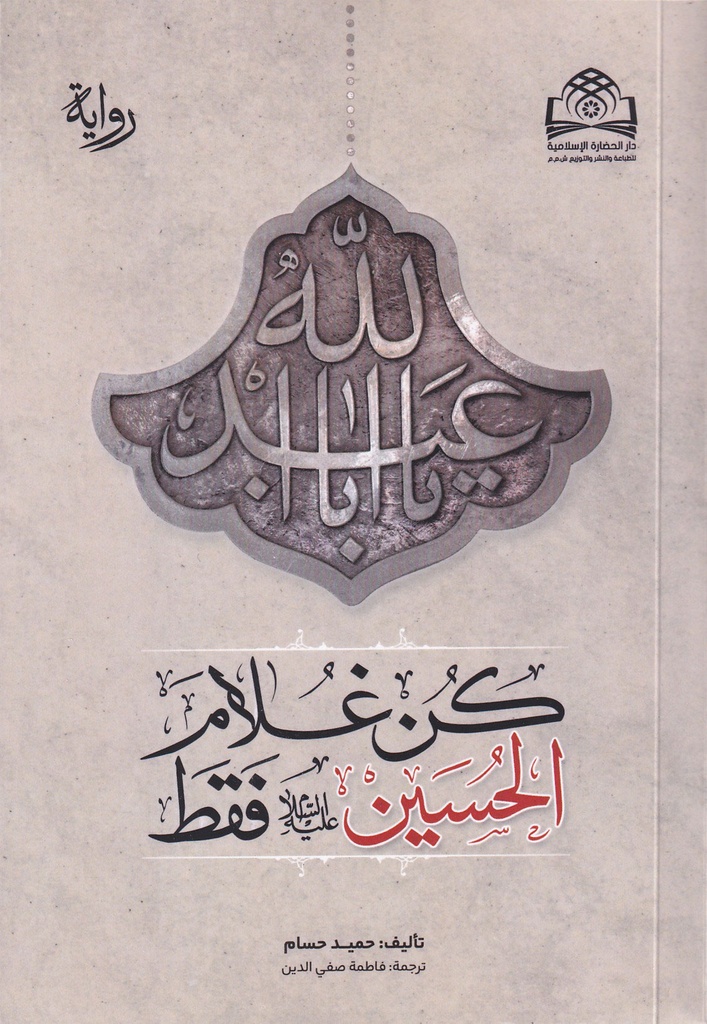 رواية
دار الحضارة الإسلامية
للطباعة والنشر والتوزيع ش.م.م
يا أبا عبد اللّٰه
كُن غُلامَ
الحُسَين عليه السلام فَقَط
تأليف: حميد حسام
ترجمة: فاطمة صفي الدين